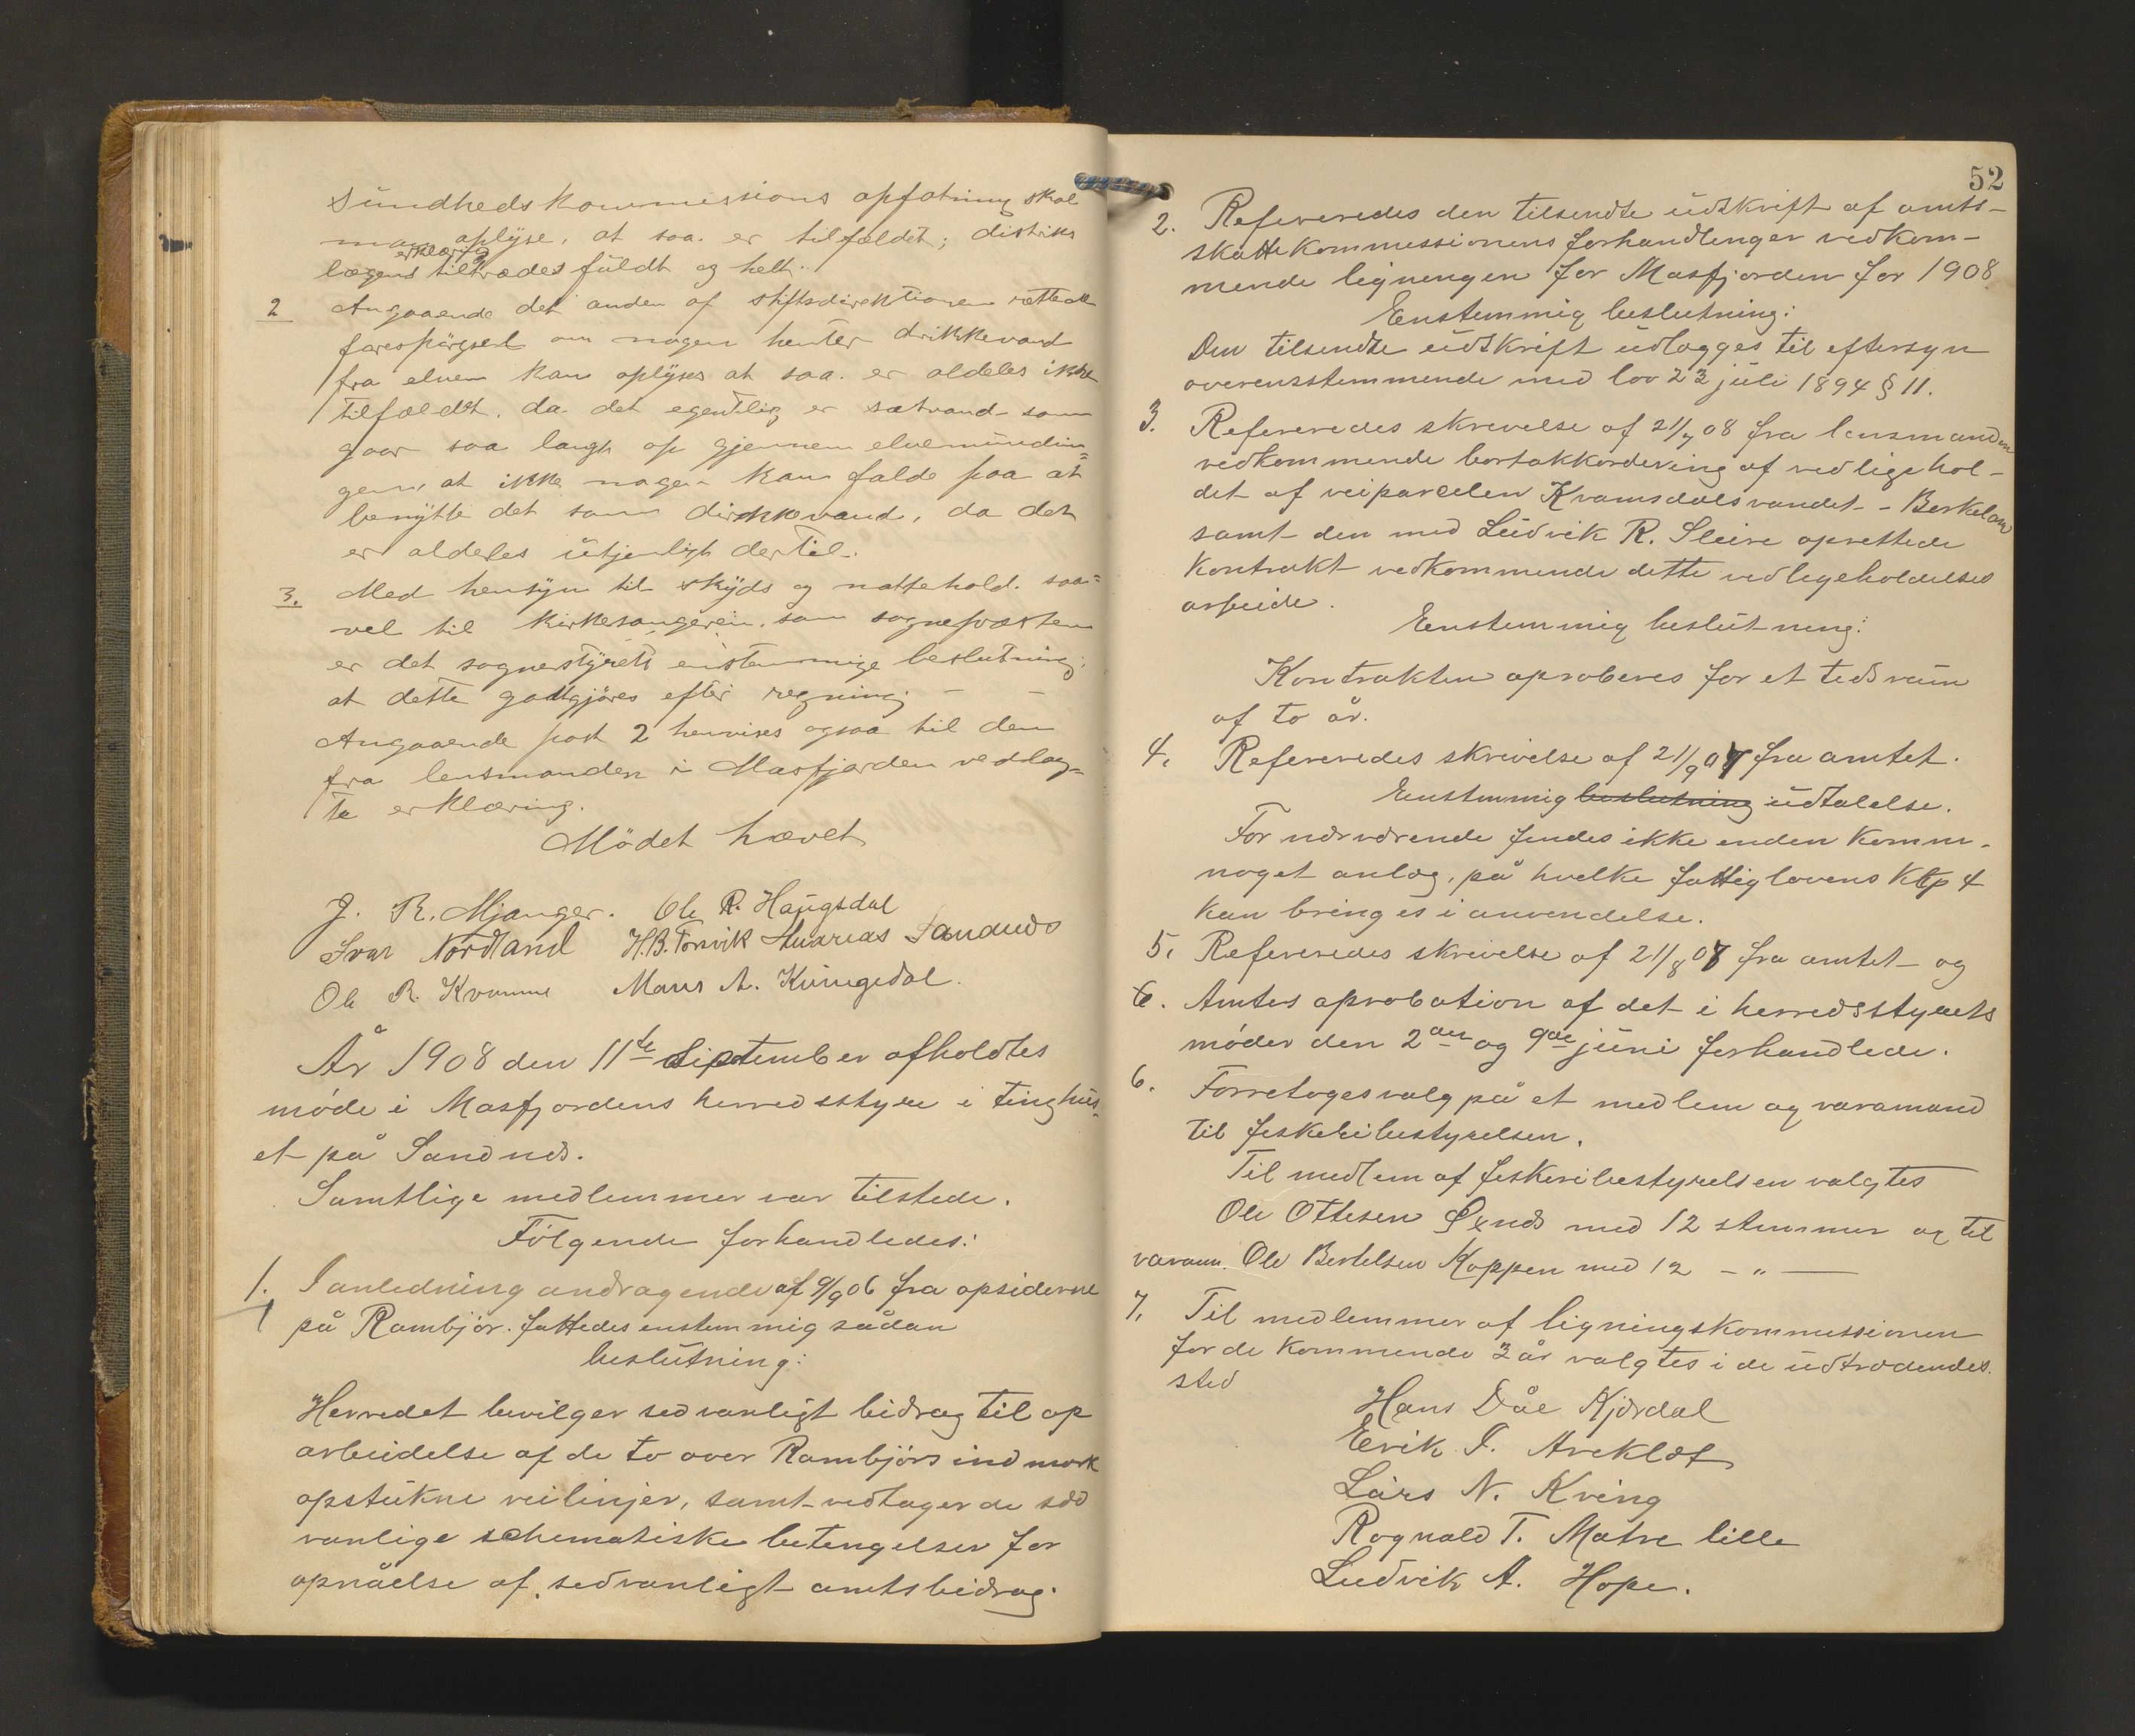 Sundhedskommissions opfatning skal
man oplyse, at saa. er tilfældet; distrikts
erklæring
lægens tiltrædes fuldt og helt.
2 Angaaende det anden af stiftsdirektionen rettede
forespörgsel om nogen henter drikkevand
fra elven kan oplyses at saa. er aldeles ikke
tilfældet. da det egentlig er saltvand som
gaar saa langt op gjennem elvemundin=
gen, at ikke nogen kan falde paa at
benytte det som drikkevand, da det
er aldeles utjenligt dertil.
3. Med hensyn til skyds og nattehold. saa=
vel til kirkesangeren, som sognepresten
er det sognestyrets enstemmige beslutning;
at dette godtgjöres efter regning. – –
Angaaende post 2 henvises ogsaa til den
fra lensmanden i Masfjorden vedlag=
te erklæring.
Mödet hævet
J. R. Mjanger. Ole R. Haugsdal
Ivar Nordland H.B. Torsvik Andreas Sandnes
Ole R. Kvamme Mons A. Kvingedal.
År 1908 den 11te September afholdtes
møde i Masfjordens herredsstyre i tinghus-
et på Sandnes.
Samtlige medlemmer var tilstede.
Følgende forhandledes:
1. I anledning andragende af 9/9 06 fra opsiderne
på Rambjør. fattedes enstemmig sådan
beslutning:
Herredet bevilger sedvanligt bidrag til op
arbeidelse af de to over Rambjörs indmark
opstukne veilinjer, samt vedtager de sed
vanlige schematiske betengelser for
opnåelse af sedvanligt amtsbidrag.
52
2. Refereredes den tilsendte udskrift af amts-
skattekommessionens forhandlenger vedkom-
mende ligningen for Masfjorden for 1908
Enstemmig beslutning:
Den tilsendte udskrift udlægges til eftersyn
overensstemmende med lov 23 juli 1894 § 11.
3. Refereredes skrevelse af 21/7 08 fra lensmanden
vedkommende bortakkordering af vedligehol-
det af veiparcelen Kvamsdalsvandet - Berkeland
samt den med Ludvik R. Sleire oprettede
Kontrakt vedkommende dette vedlegeholdelses
arbeide.
Enstemmig beslutning:
Kontrakten aproberes for et tedsrum
af to år.
4. Refereredes skrivelse af 21/9 07 fra amtet.
Enstemmig beslutning udtalelse.
For nærværende fendes ikke enden komm.
noget anlæg, på hvelke fattiglovens Kap 4
kan bringes i anvendelse.
5. Refereredes skrivelse af 21/8 07 fra amtet og
6. Amtets aprobation af det i herredsstyrets
møder den 2den og 9de juni forhandlede.
6. Forretoges valg på et medlem og varamand
til feskeribestyrelsen.
Til medlem af feskeribestyrelsen valgtes
Ole Ottesen Øxnes med 12 stemmer og tel
varam. Ole Bertelsen Koppen med 12 - „ —
7. Til medlemmer af ligningskommessionen
for de kommende 3 år valgtes i de udtrædendes
sted
Hans Dåe Kjørdal
Erik I. Areklet
Lars N. Kving
Rognald T. Matre lille
Ludvik A. Hope.